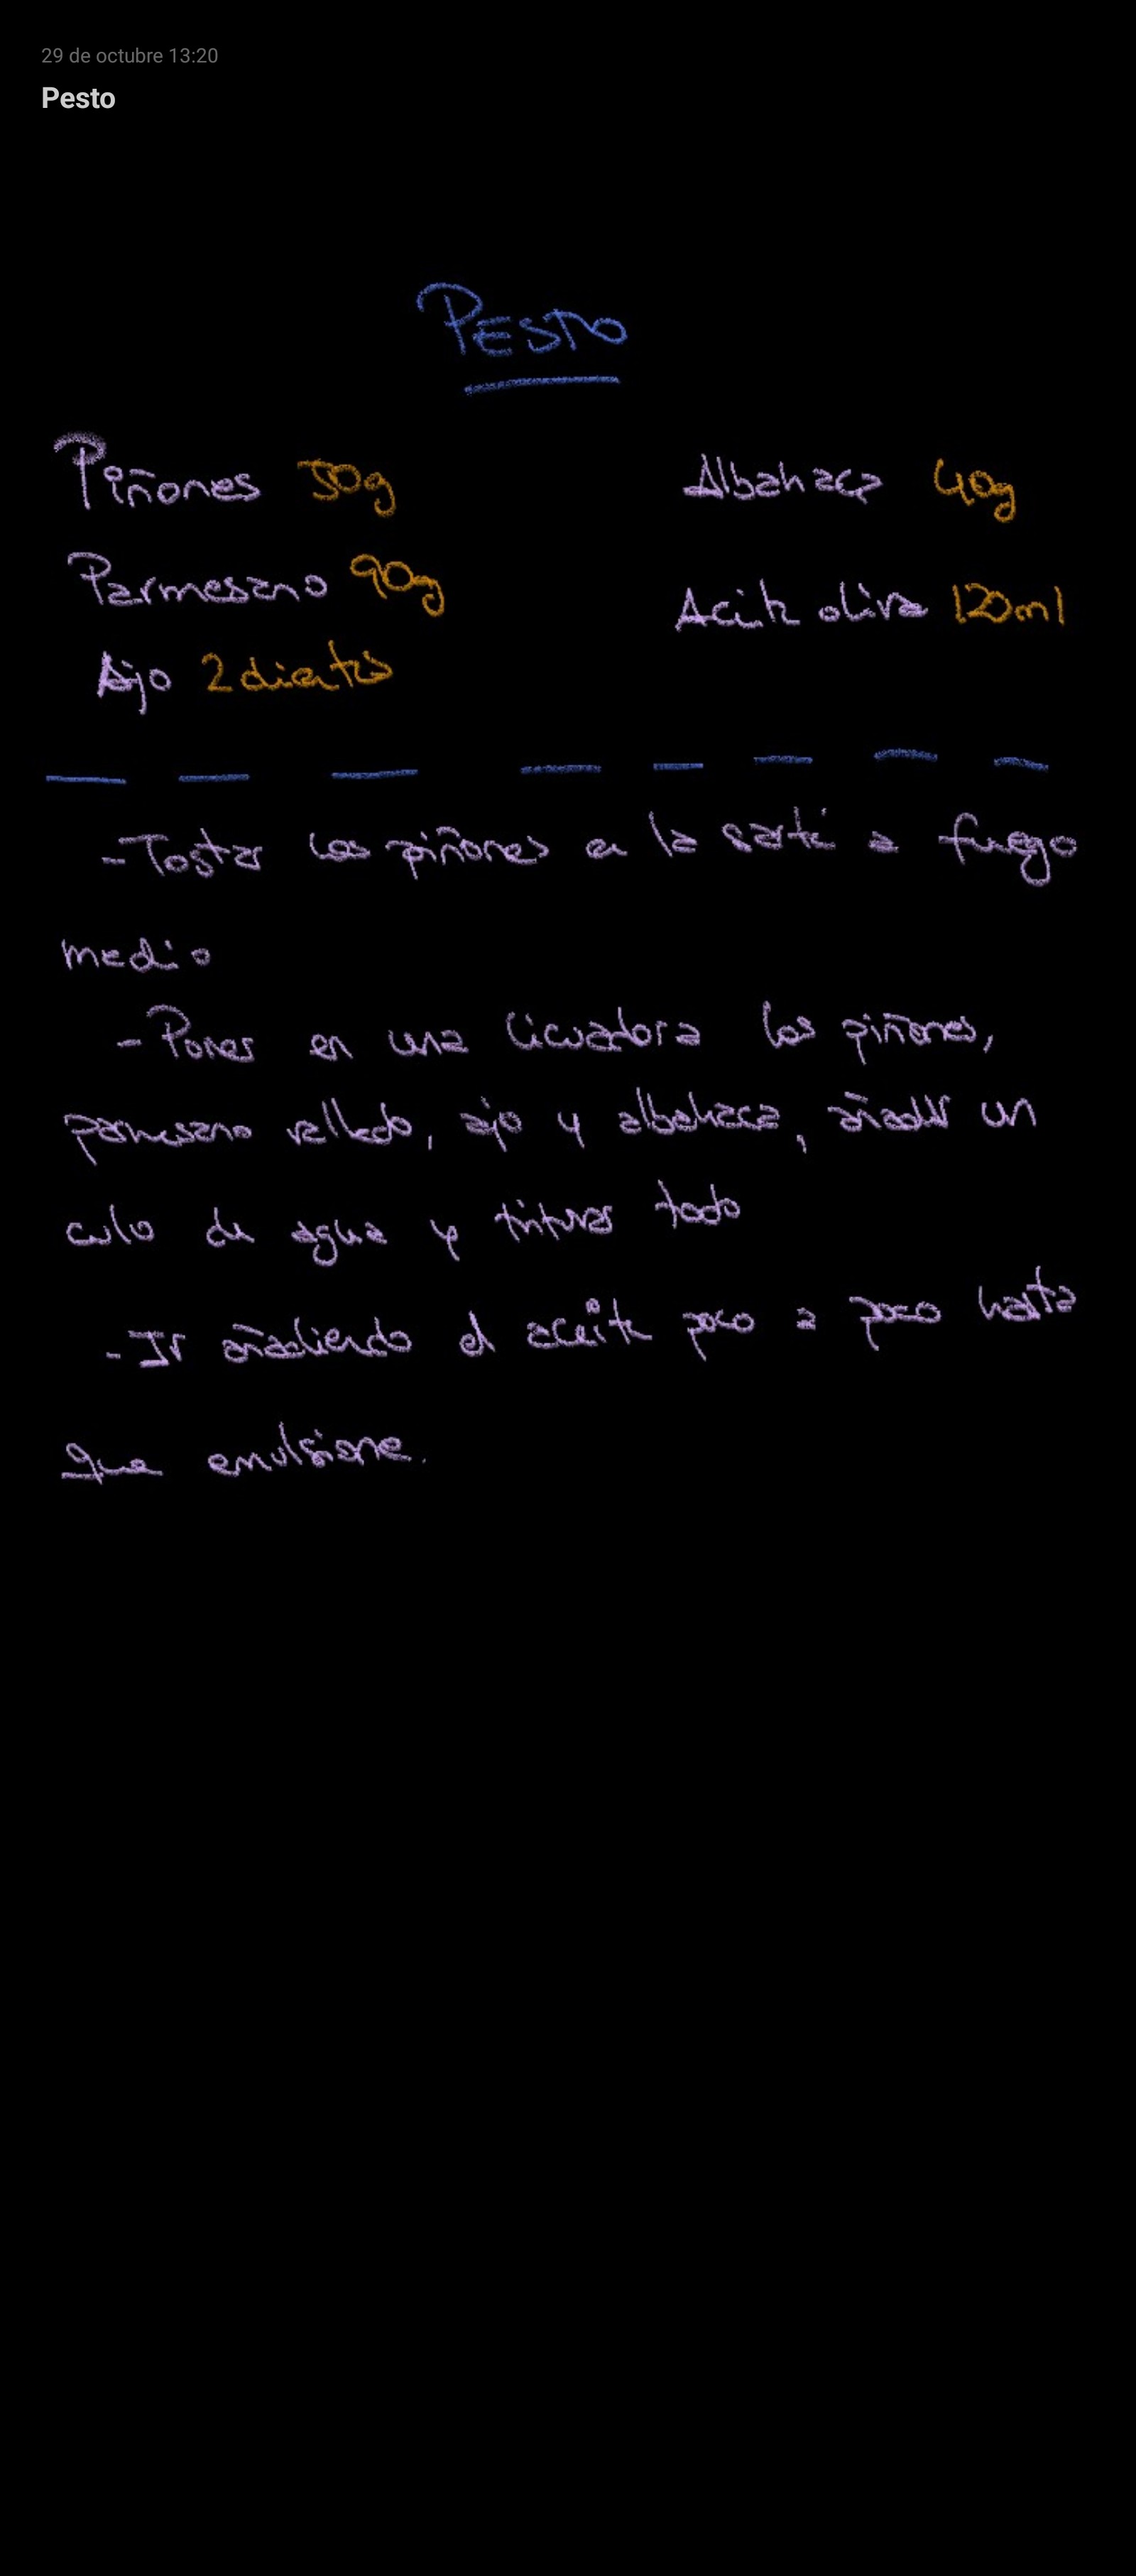 29 de octubre 13:20
Pesto
PESTO
Piñones 50g
Albahaca 40g
Parmesano 90g
Aceite oliva 120ml
Ajo 2 dientes
- Tostar los piñones en la sartén a fuego
medio
- Poner en una licuadora los piñones,
parmesano rallado, ajo y albahaca, añadir un
culo de agua y triturar todo
- Ir añadiendo el aceite poco a poco hasta
que emulsione.